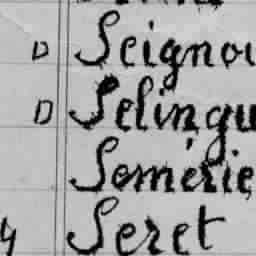 D Seignou
D Selingu
Semérie
4 Seret